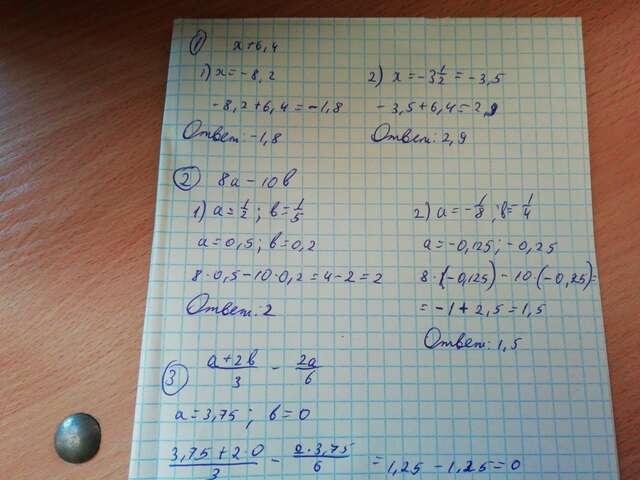 ① x+6,4
1) x=-8,2
-8,2+6,4=-1,8
Ответ: -1,8
2) x=-3 1/2=-3,5
-3,5+6,4=2,9
Ответ: 2,9
② 8a-10b
1) a=1/2; b=1/5
a=0,5; b=0,2
8·0,5-10·0,2=4-2=2
Ответ: 2
2) a=-1/8; b=-1/4
a=-0,125; -0,25
8·(-0,125)-10·(-0,25)=
=-1+2,5=1,5
Ответ: 1,5
③ (a+2b)/3 - 2a/6
a=3,75; b=0
(3,75+2·0)/3 - (2·3,75)/6 =1,25-1,25=0